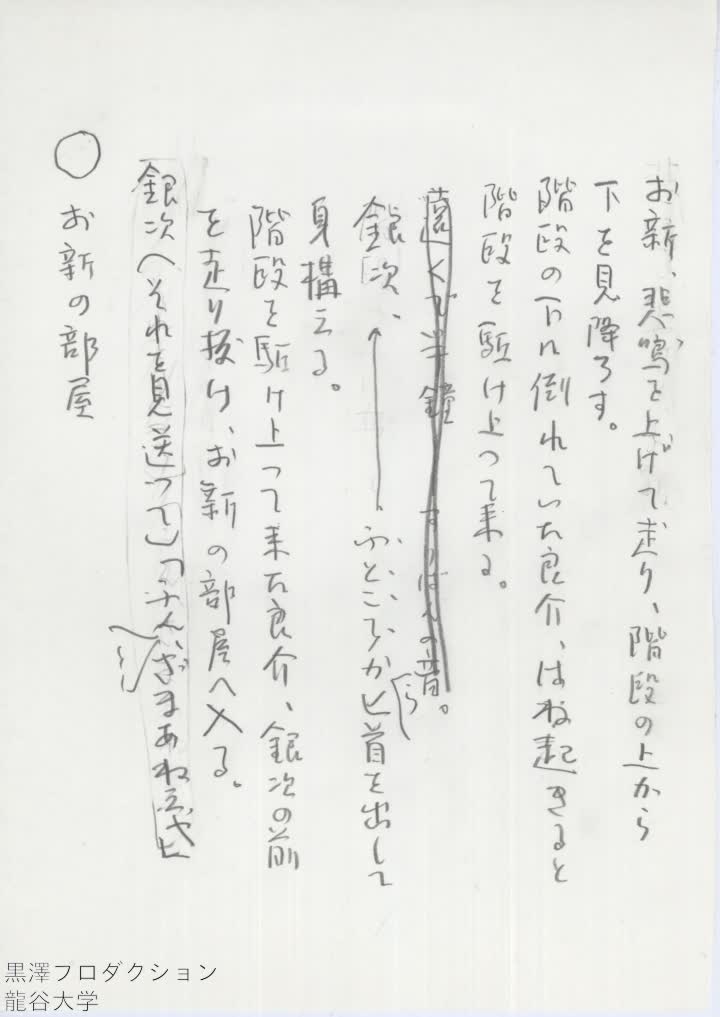 お新、悲鳴を上げて走り、階段の上から
下を見降ろす。
階段の下に倒れていた良介、はね起きると
階段を駈け上って来る。
遠くで半鐘　すりばんの音。
銀次、ふところから匕首を出して
身構える。
階段を駈け上って来た良介、銀次の前
を走り抜け、お新の部屋へ入る。
銀次へそれを見送って）「ふん、ざまあねえや」
○　お新の部屋
黒澤プロダクション
龍谷大学